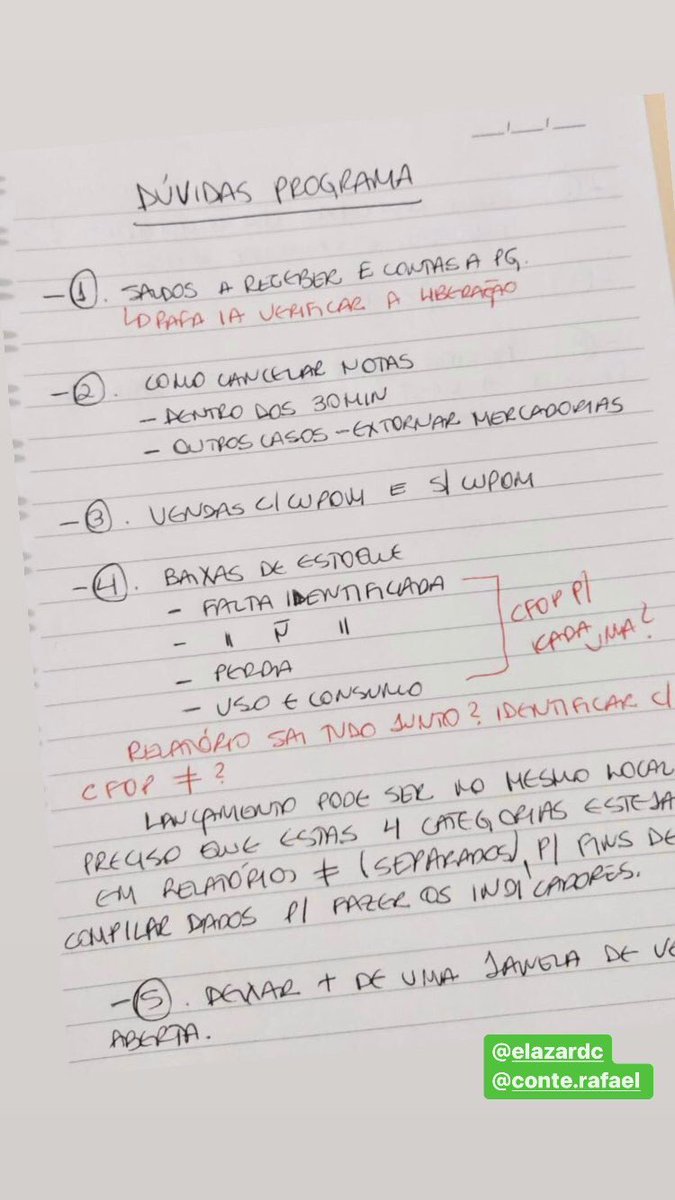 __/__/__
DÚVIDAS PROGRAMA
- 1. SALDOS A RECEBER E CONTAS A PG.
RAFA IA VERIFICAR A LIBERAÇÃO
- 2. COMO CANCELAR NOTAS
- DENTRO DOS 30MIN
- OUTROS CASOS - EXTORNAR MERCADORIAS
- 3. VENDAS C/ CUPOM E S/ CUPOM
- 4. BAIXAS DE ESTOQUE
- FALTA IDENTIFICADA
- " Ñ "
- PERDA
- USO E CONSUMO
CFOP P/
CADA UMA?
RELATÓRIO SAI TUDO JUNTO? IDENTIFICAR C/
CFOP ≠ ?
LANÇAMENTO PODE SER NO MESMO LOCAL
PRECISO QUE ESTAS 4 CATEGORIAS ESTEJA
EM RELATÓRIOS ≠ (SEPARADOS), P/ FINS DE
COMPILAR DADOS P/ FAZER OS INDICADORES.
- 5. DEIXAR + DE UMA JANELA DE VE
ABERTA.
@elazardc
@conte.rafael